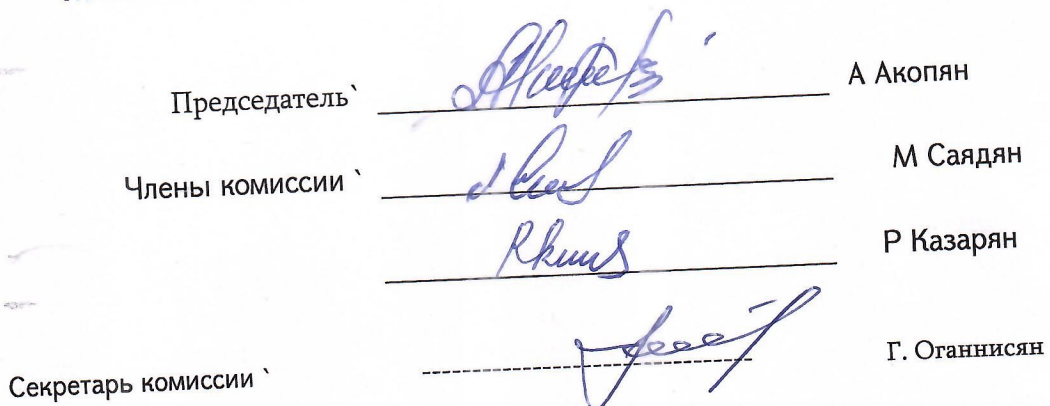 Председатель` А Акопян
Члены комиссии ` М Саядян
Р Казарян
Секретарь комиссии ` Г. Оганнисян